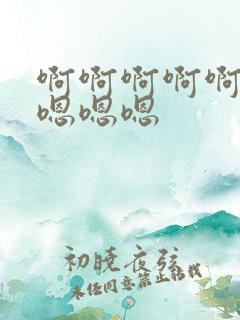 啊啊啊啊啊
嗯嗯嗯
初晓夜弦
未经同意禁止转载